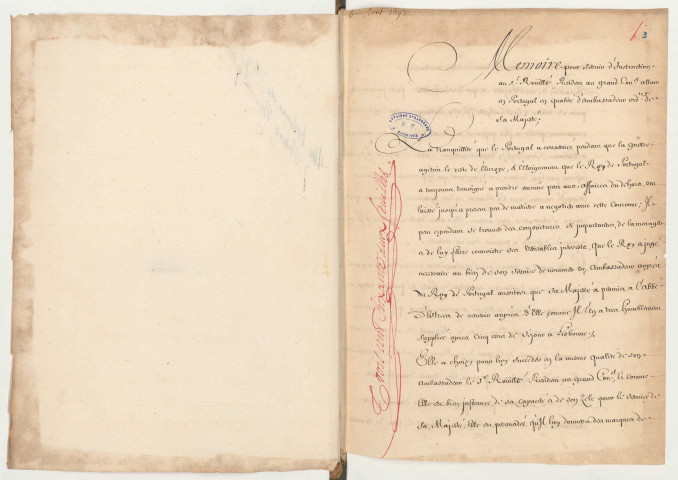 Aout 1697
1
3
Memoire pour servir d'Instruction
au Sr. Roüillé President au grand Conel. allant
en Portugal en qualité d'ambassadeur ordre. de
sa Majesté;
AFFAIRES ETRANGERES
ARCHIVES
La tranquillité que le Portugal a conservée pendant que la guerre
agitoit le reste de l'Europe, et l'éloignement que le Roy de Portugal
a toujours temoigné a prendre aucune part aux affaires du dehors, ont
laissé jusqu'a present peu de matiere a negotier avec cette Couronne; Il
peut cependant se trouver des conjonctures si importantes, de la menager
et de luy faire connoistre ses veritables interests que le Roy a jugé
necessaire au bien de son service de nommer un Ambassadeur auprés
du Roy de Portugal aussitost que sa Majesté a permis a l'abbé
d'Estrées de revenir auprés d'Elle comme Il l'en a tres humblement
supplié apres cinq ans de sejour a Lisbonne;
Elle a choisy pour luy succeder en la mesme qualité de son
Ambassadeur le Sr. Roüillé President au grand Conel. et comme
Elle est bien informée de sa capacité et de son Zele pour le service de
sa Majesté, Elle est persuadée qu'Il luy donnera des marques de